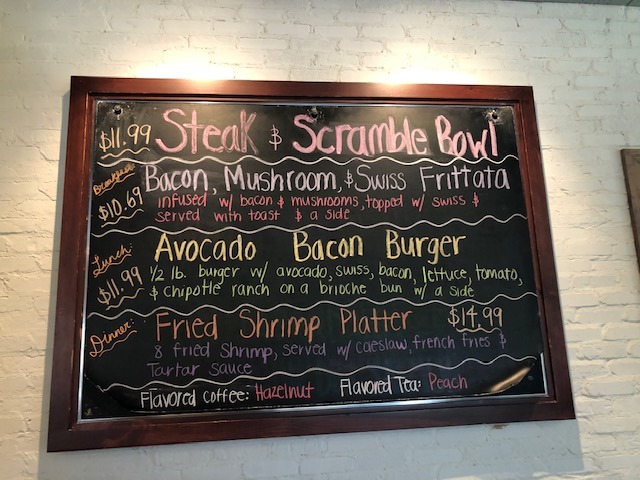 $11.99 Steak & Scramble Bowl
Breakfast:
Bacon, Mushroom, & Swiss Frittata
$10.69
infused w/ bacon & mushrooms, topped w/ swiss &
served with toast & a side
Lunch:
Avocado Bacon Burger
$11.99
1/2 lb. burger w/ avocado, swiss, bacon, lettuce, tomato,
& chipotle ranch on a brioche bun w/ a side
Dinner:
Fried Shrimp Platter $14.99
8 fried shrimp, served w/ coleslaw, french fries &
Tartar sauce
Flavored coffee: Hazelnut Flavored Tea: Peach